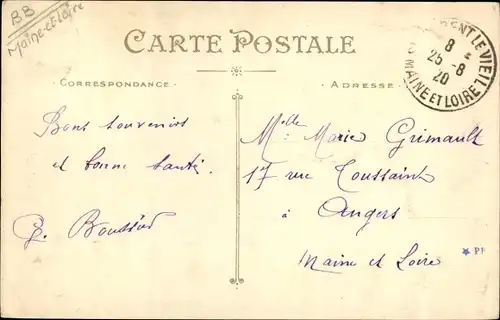 BB
Maine-et-Loire
CARTE POSTALE
ENT LE VIEIL
8
25-8
20
MAINE ET LOIRE
CORRESPONDANCE
ADRESSE
Bons souvenirs
et bonne santé.
Melle Marie Grimault
17 rue Toussaint
à
Angers
Maine et Loire